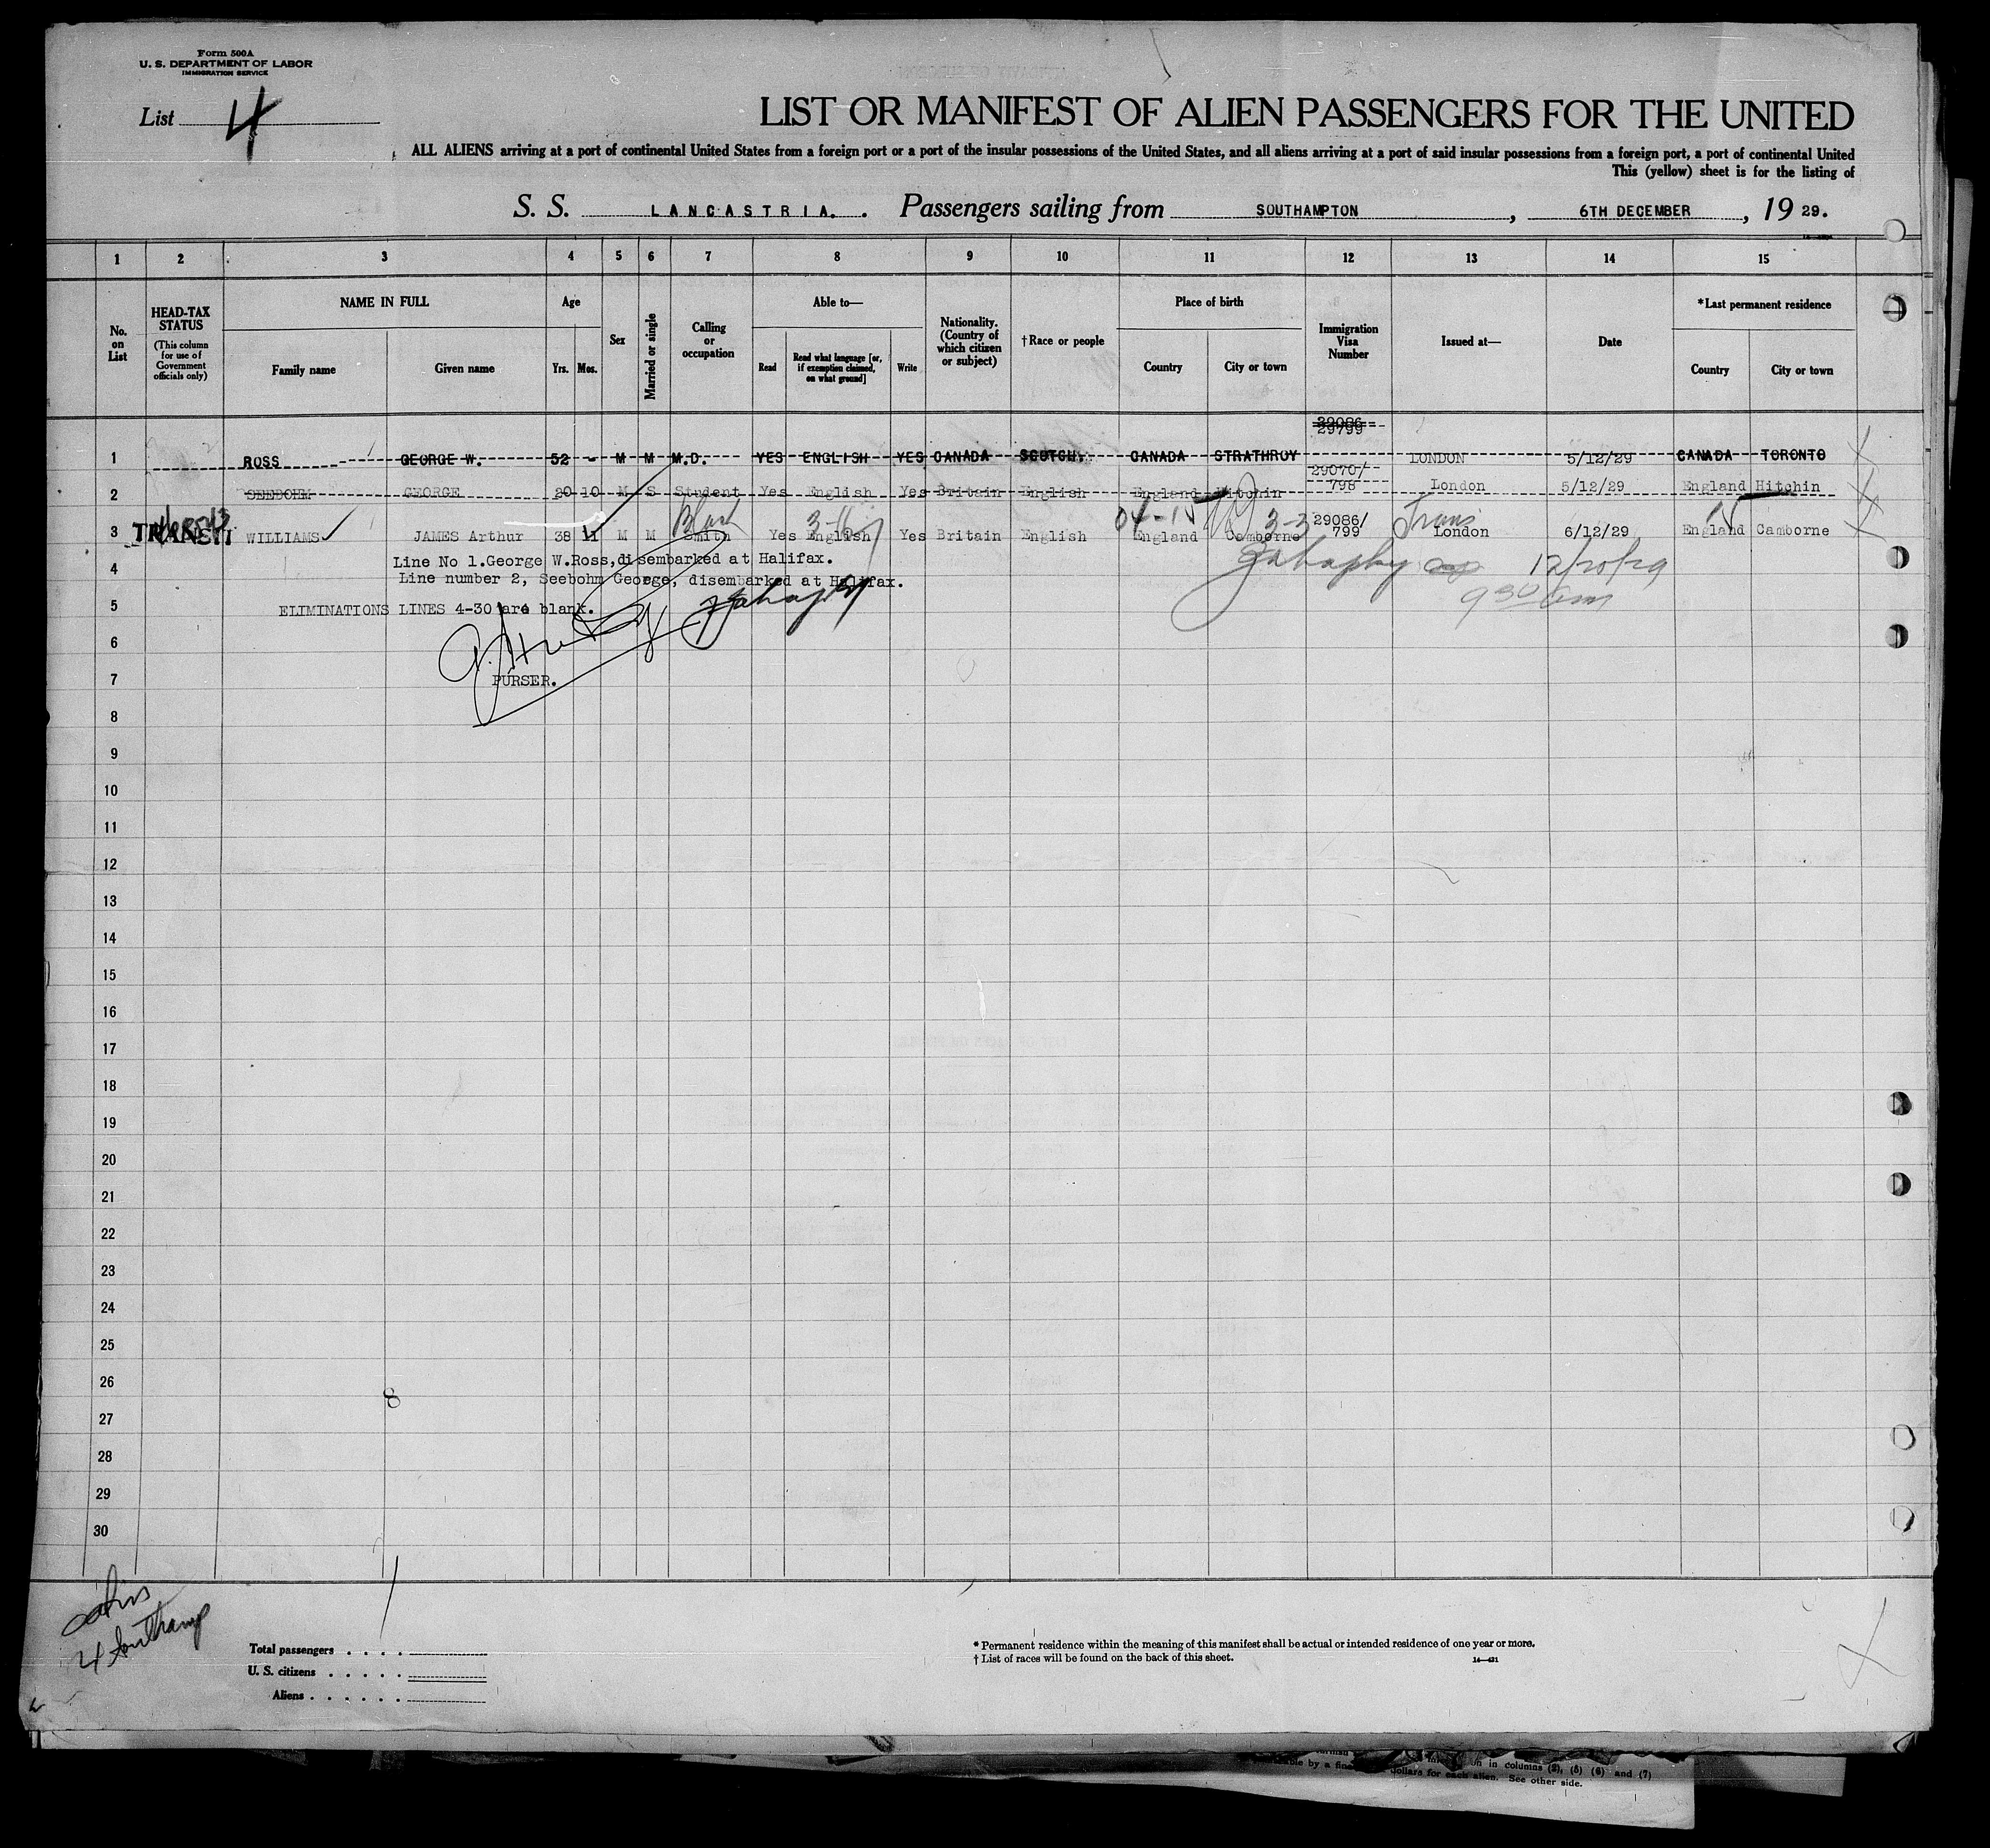 Form 500A
U. S. DEPARTMENT OF LABOR
IMMIGRATION SERVICE
List 4
LIST OR MANIFEST OF ALIEN PASSENGERS FOR THE UNITED
ALL ALIENS arriving at a port of continental United States from a foreign port or a port of the insular possessions of the United States, and all aliens arriving at a port of said insular possessions from a foreign port, a port of continental United
This (yellow) sheet is for the listing of
S. S. LANCASTRIA. . Passengers sailing from SOUTHAMPTON , 6TH DECEMBER , 19 29.
1 2 3 4 5 6 7 8 9 10 11 12 13 14 15
No. on List
HEAD-TAX STATUS (This column for use of Government officials only)
NAME IN FULL
Family name Given name
Age
Yrs. Mos.
Sex
Married or single
Calling or occupation
Able to—
Read Read what language [or, if exemption claimed, on what ground] Write
Nationality. (Country of which citizen or subject)
†Race or people
Place of birth
Country City or town
Immigration Visa Number
Issued at—
Date
*Last permanent residence
Country City or town
29086
29799
1 ROSS GEORGE W. 52 - M M M.D. YES ENGLISH YES CANADA SCOTCH. CANADA STRATHROY LONDON 5/12/29 CANADA TORONTO
2 SEEBOHM GEORGE 20 10 M S Student Yes English Yes Britain English England Hitchin 29070/798 London 5/12/29 England Hitchin
Black 3-3 Trans
3 TRANSIT WILLIAMS JAMES Arthur 38 11 M M Smith Yes English Yes Britain English England Camborne 29086/799 London 6/12/29 England Camborne
Line No 1.George W.Ross,disembarked at Halifax.
4 12/10/29
Line number 2, Seebohm George, disembarked at Halifax.
930 am
5 ELIMINATIONS LINES 4-30 are blank.
6
7 PURSER.
8
9
10
11
12
13
14
15
16
17
18
19
20
21
22
23
24
25
26
8
27
28
29
30
4 Southamp
Total passengers . . . .
U. S. citizens . . . . .
Aliens . . . . . .
* Permanent residence within the meaning of this manifest shall be actual or intended residence of one year or more.
† List of races will be found on the back of this sheet.
14—421
on in columns (2), (5) (6) and (7)
able by a fine dollars for each alien. See other side.